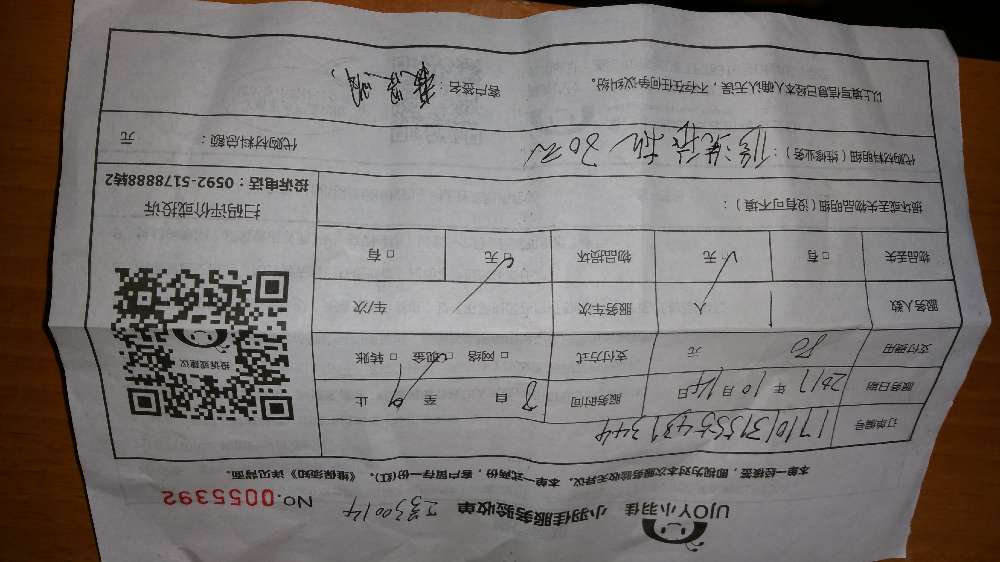 UJOY小羽佳 小羽佳服务验收单 No.0055392
本单一经核签，即视为对本次服务验收无异议。本单一式两份，客户留存一份(红)。《维保须知》详见背面。
订单编号
服务日期 2017年10月14日 服务时间 8 自 至 9 止
支付费用 80 元 支付方式 □网络 □现金 □转账
服务人数 1 人 服务车次 车/次
物品丢失 □有 □无 物品损坏 □无 □有
损坏或丢失物品明细（没有可不填）：
投诉或建议
扫码评价或投诉
投诉电话：0592-5178888转2
代购材料明细（维修业务）： 洗 机 80元 代购材料总额： 元
以上填写信息已经本人确认无误，不存在任何争议纠纷。 客户签名：